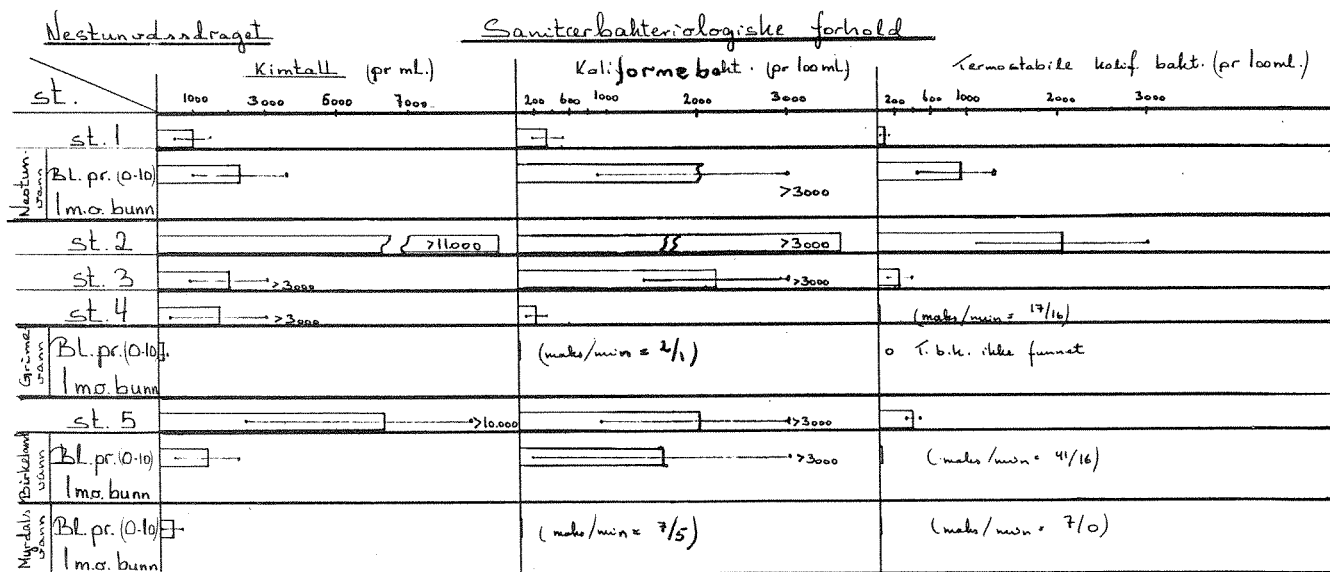 Nestunvdssdraget Sanitærbakteriologiske forhold
st. Kimtall (pr ml.) Koliforme bakt. (pr 100ml.) Termostabile kolif. bakt. (pr 100ml.)
1000 3000 5000 7000 200 600 1000 2000 3000 200 600 1000 2000 3000
st. 1
Nestun-vann BL.pr. (0-10) >3000
1 m.o. bunn
st. 2 >11.000 >3000
st. 3 >3000 >3000
st. 4 >3000 (maks/min = 17/16)
Grime vann BL.pr. (0-10) (maks/min = 2/1) o T.b.k. ikke funnet
1 m.o. bunn
st. 5 >10.000 >3000
Birkeland vann BL.pr. (0-10) >3000 (maks/min = 41/16)
1 m.o. bunn
Myrdals vann BL.pr. (0-10) (maks/min = 7/5) (maks/min = 7/0)
1 m.o. bunn